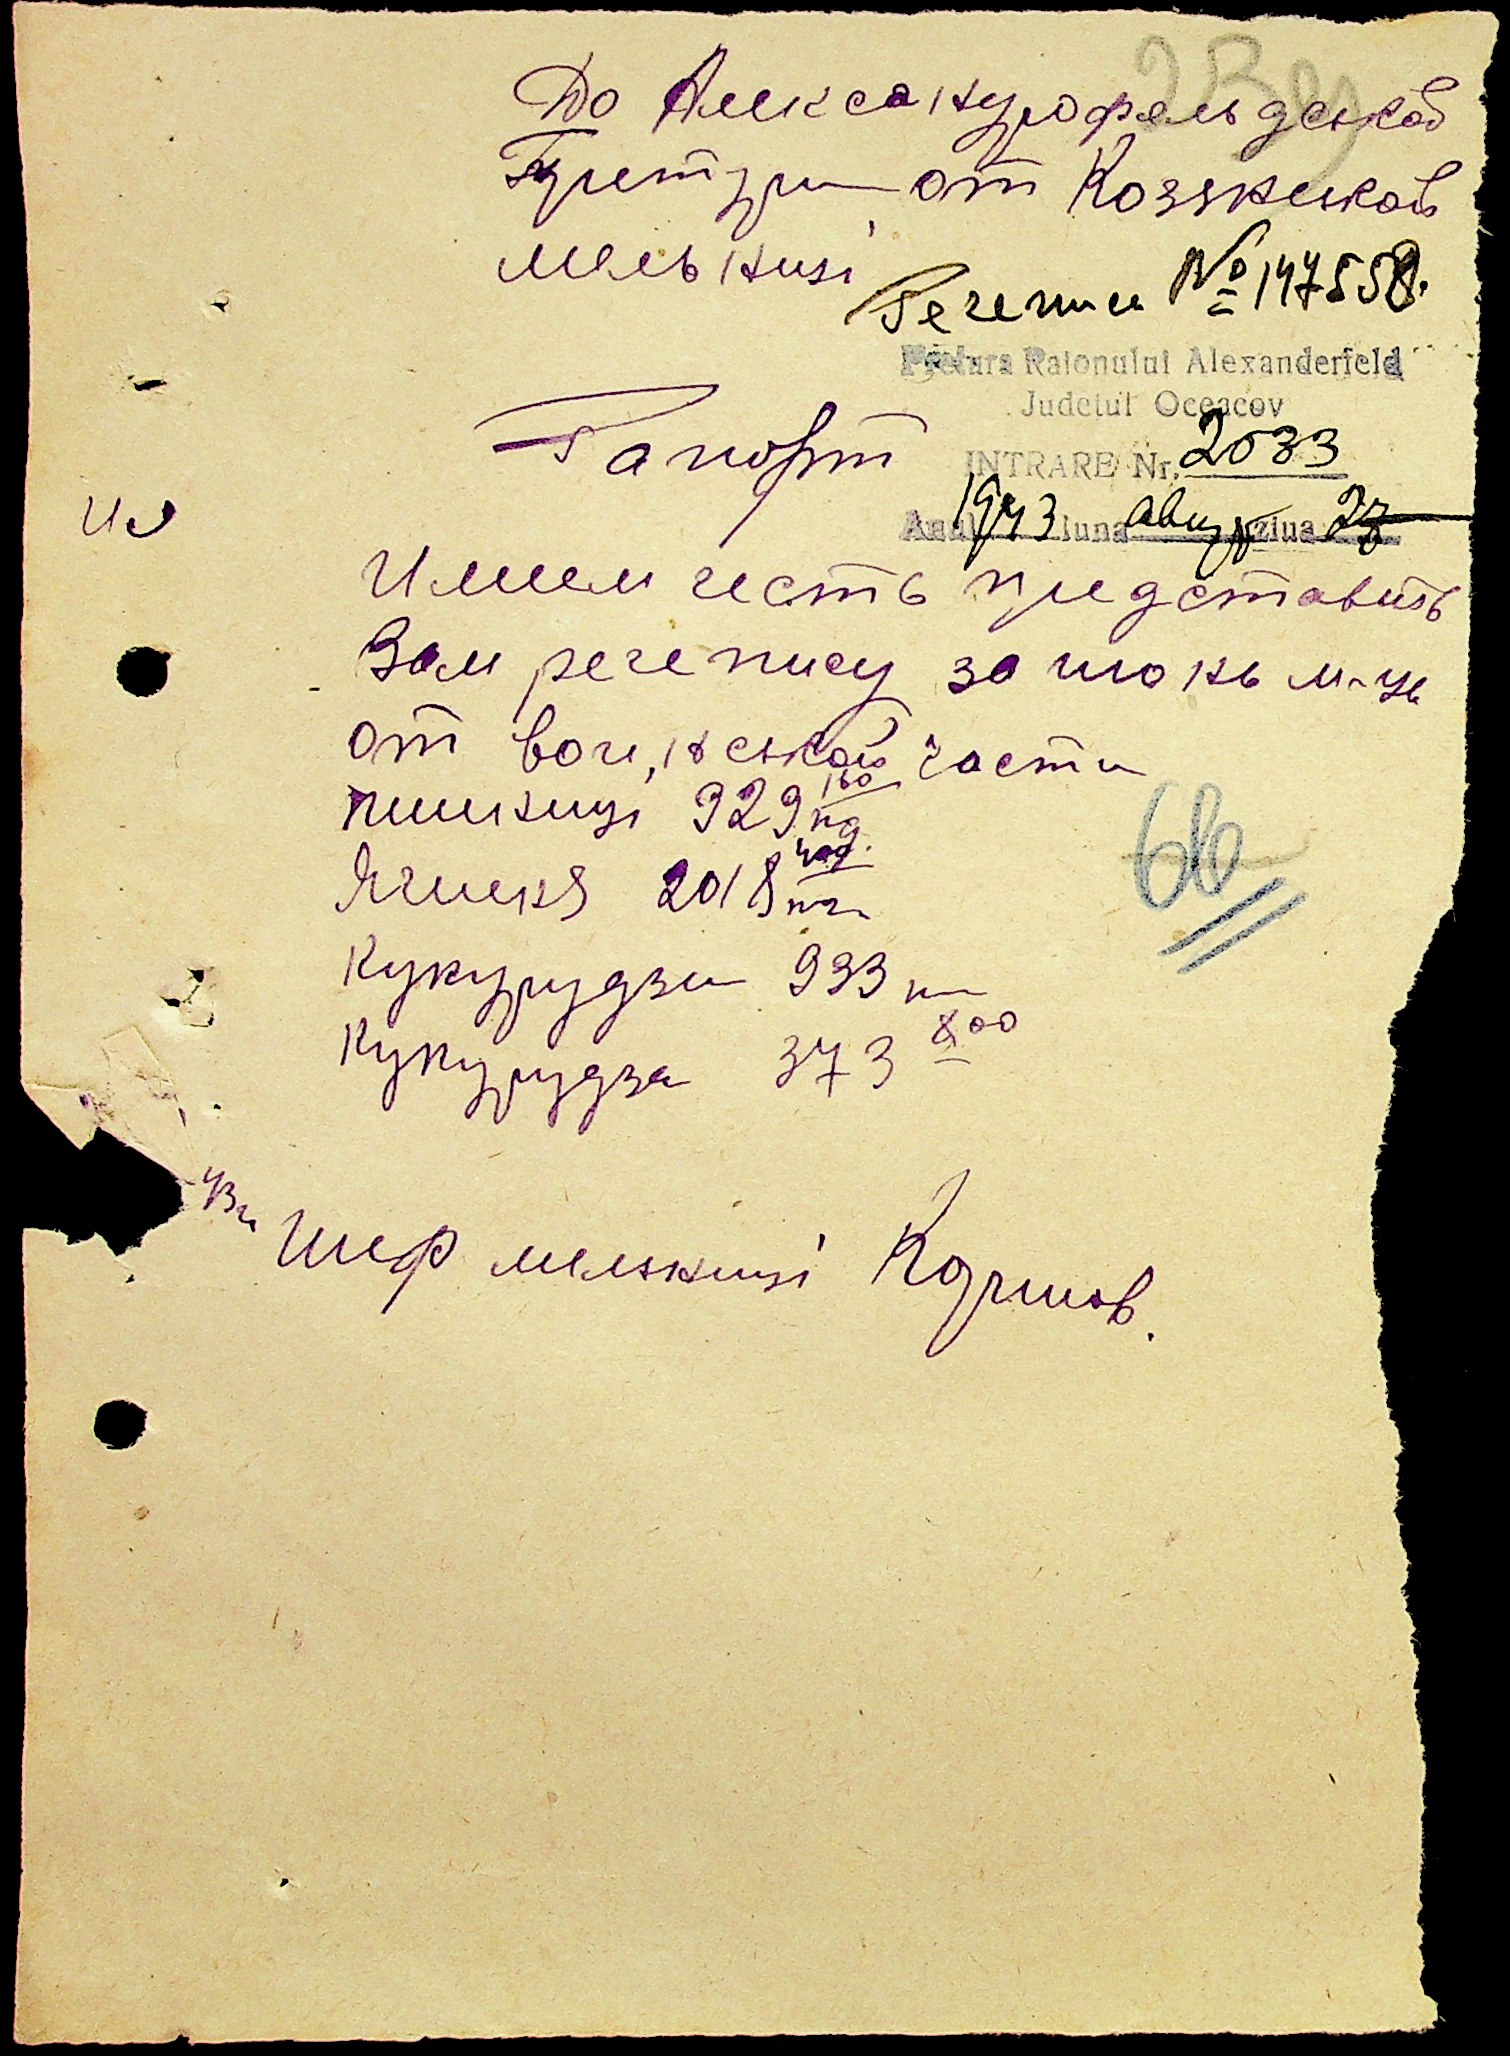 До Александрофельдськой
Претури от Козякской
мельниці
Речепис № 147558.
Pretura Raionului Alexanderfeld
Judetul Oceacov
Рапорт
INTRARE Nr. 2033
Anul 1943 luna август ziua 27
Имеем честь представить
Вам речепису за июнь м-ць
от воиньской части
пшениці 929 160 кг
Ячменя 2018 400 кг
Кукурудзи 933 кг
Кукурудза 373 800
Шеф мельниці